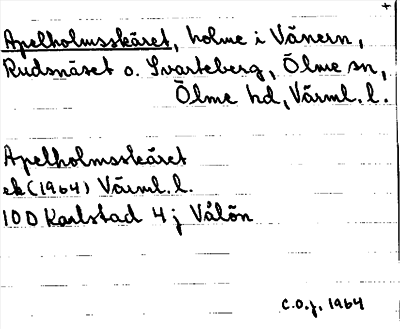 +
Apelholmsskäret, holme i Vänern,
Rudsnäset o. Svarteberg, Ölme sn,
Ölme hd, Värml. l.
Apelholmsskäret
ek (1964) Värml. l.
10D Karlstad 4 j Vålön
C.O.J. 1964